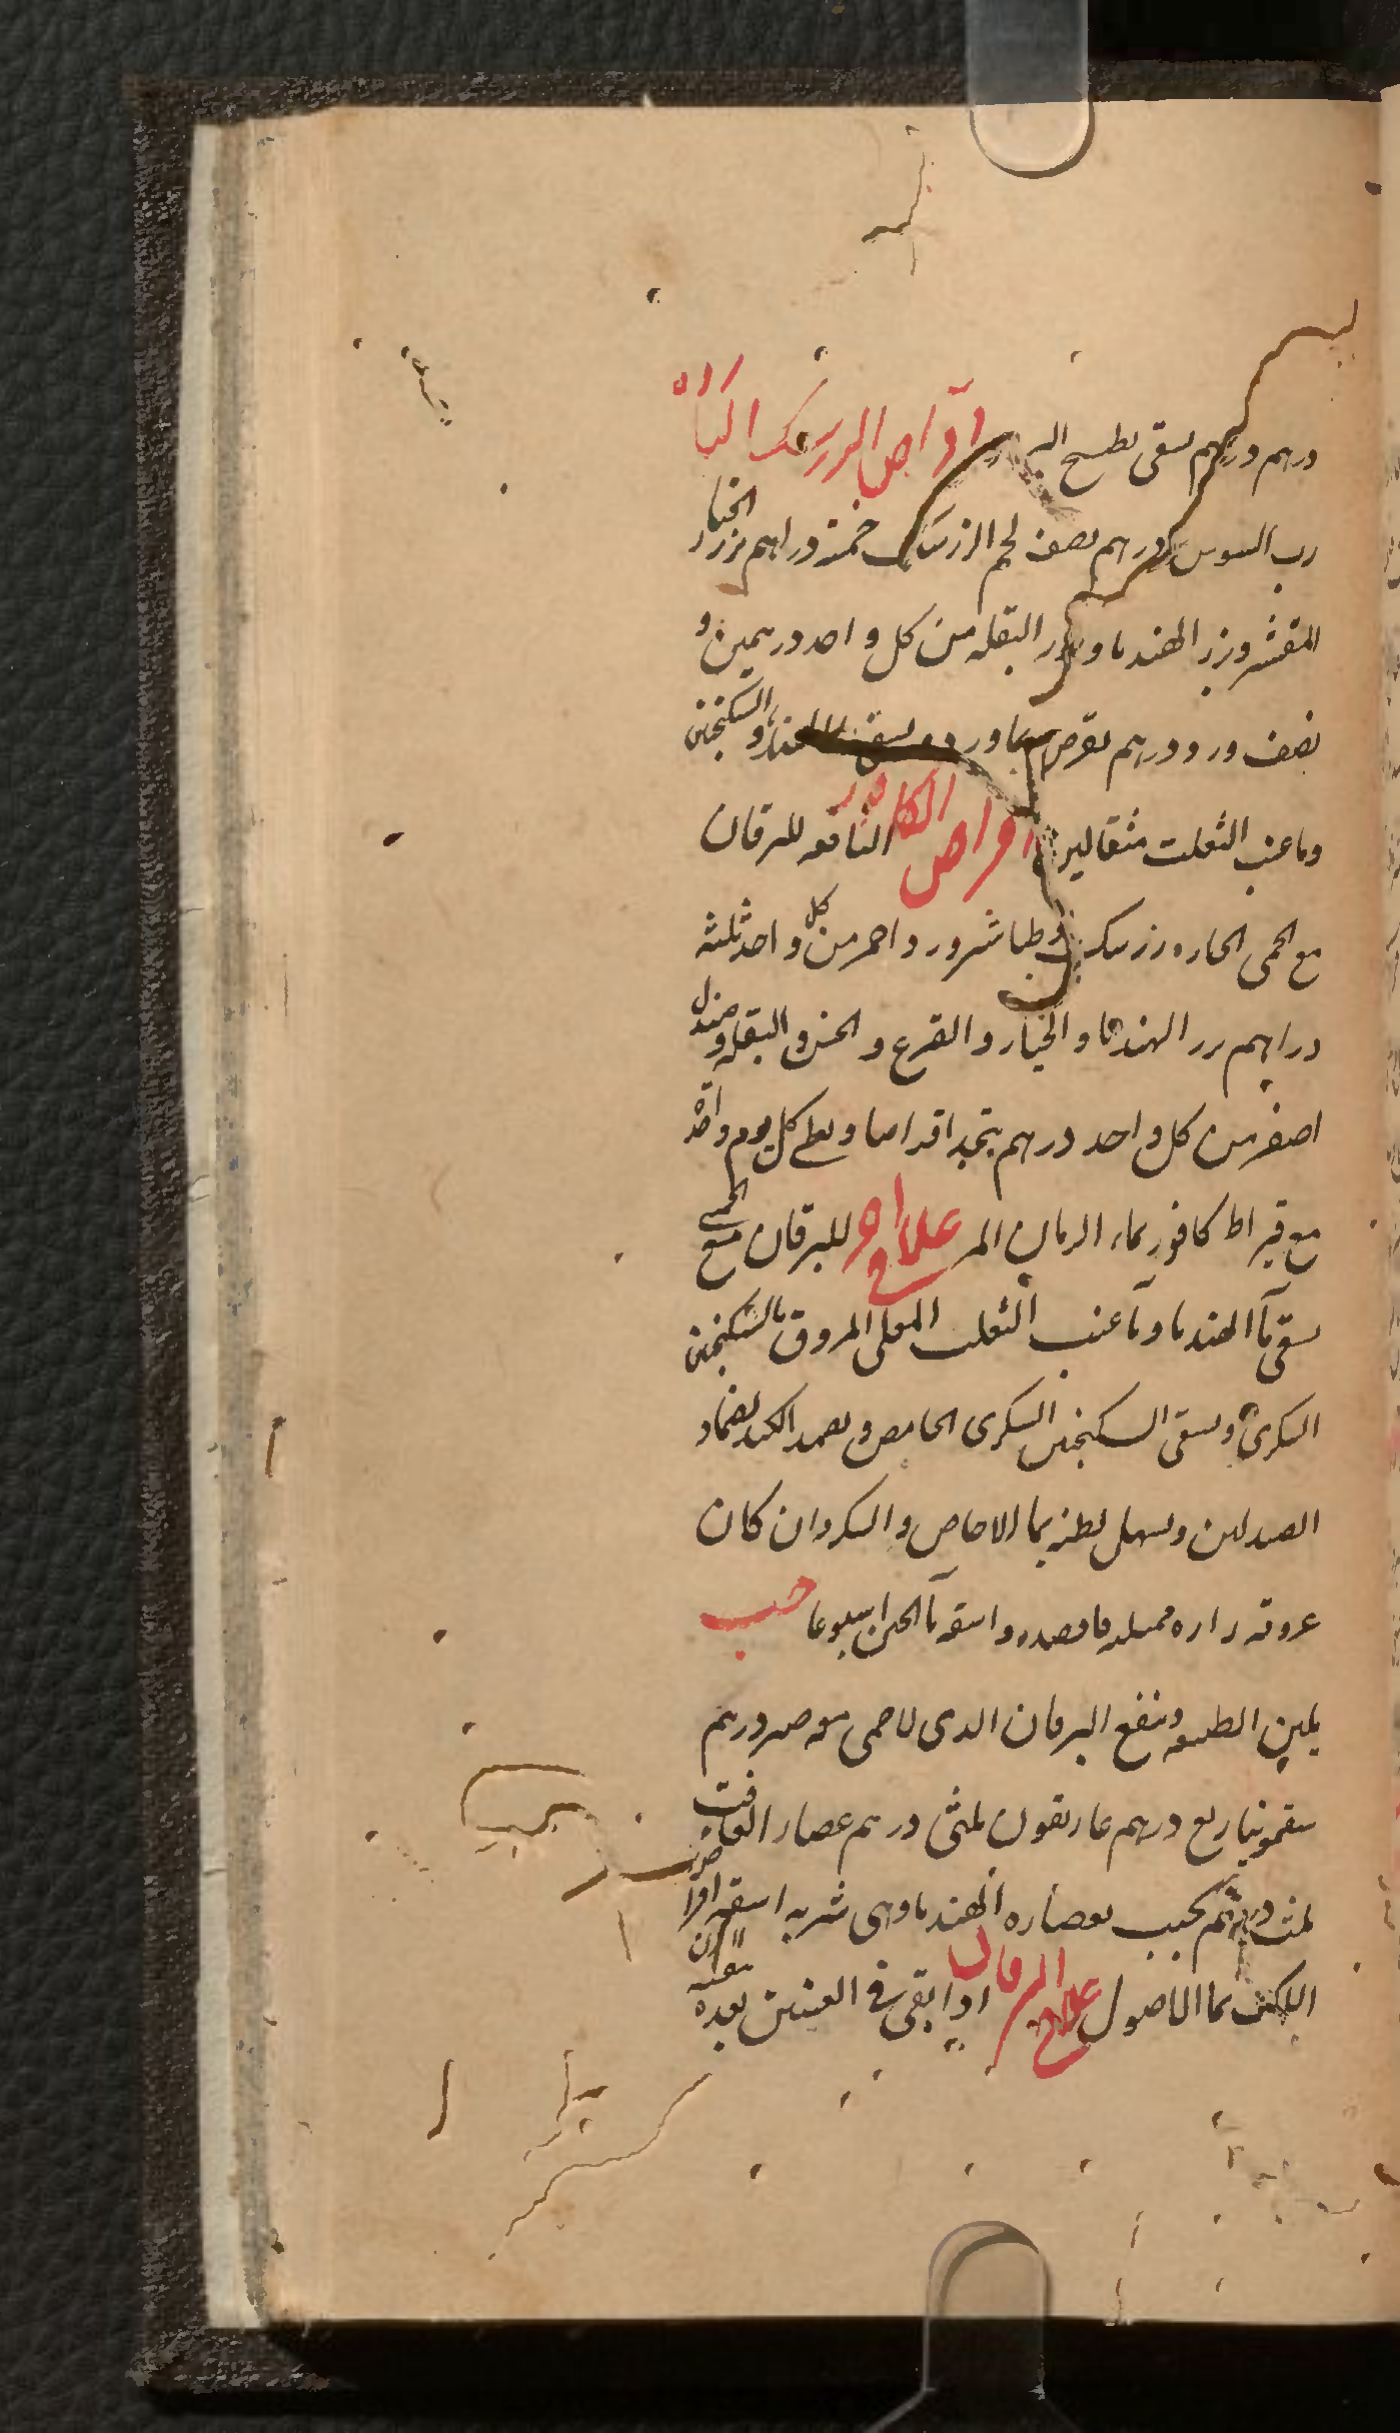 درهم درهم يسقى بطبيخ البزور اقراص الزرشك الباردة
رب السوس درهم نصف لحم الزرشك خمسة دراهم بزر الخيار
المقشر وبزر الهندبا وبزر البقله من كل واحد درهمين و
نصف ورد درهم يقرص بماورد ويسقى بالهندبا والسكنجبين
وما عنب الثعلب مثقالين اقراص الكافور النافعه لليرقان
مع الحمى الحاره زرشك وطباشير ورد احمر من كل واحد ثلثه
دراهم بزر الهندبا والخيار والقرع والخس والبقله وصندل
اصفر من كل واحد درهم يتخذ اقراصا ويعطى كل يوم واحد
مع قيراط كافور بماء الرمان المز علاج اخر لليرقان مع الحمى
يسقى مآ الهندبا ومآ عنب الثعلب المغلى المروق بالسكنجبين
السكرى ويسقى السكنجبين السكرى الحامض ويضمد الكبد بضماد
الصندلين ويسهل بطنه بما الاجاص والسكر وان كان
عروقه داره ممتليه فافصده واسقه مآ الجبن اسبوعا حب
يلين الطبيعه وينفع اليرقان الذى لا حمى معه صبر درهم
سقمونيا ربع درهم غاريقون ثلثى درهم عصار الغافت
ثلث درهم يحبب بعصاره الهندبا وهى شربه اسقه اقراص
اللك بما الاصول علاج اليرقان اذا بقى فى العينين بعده